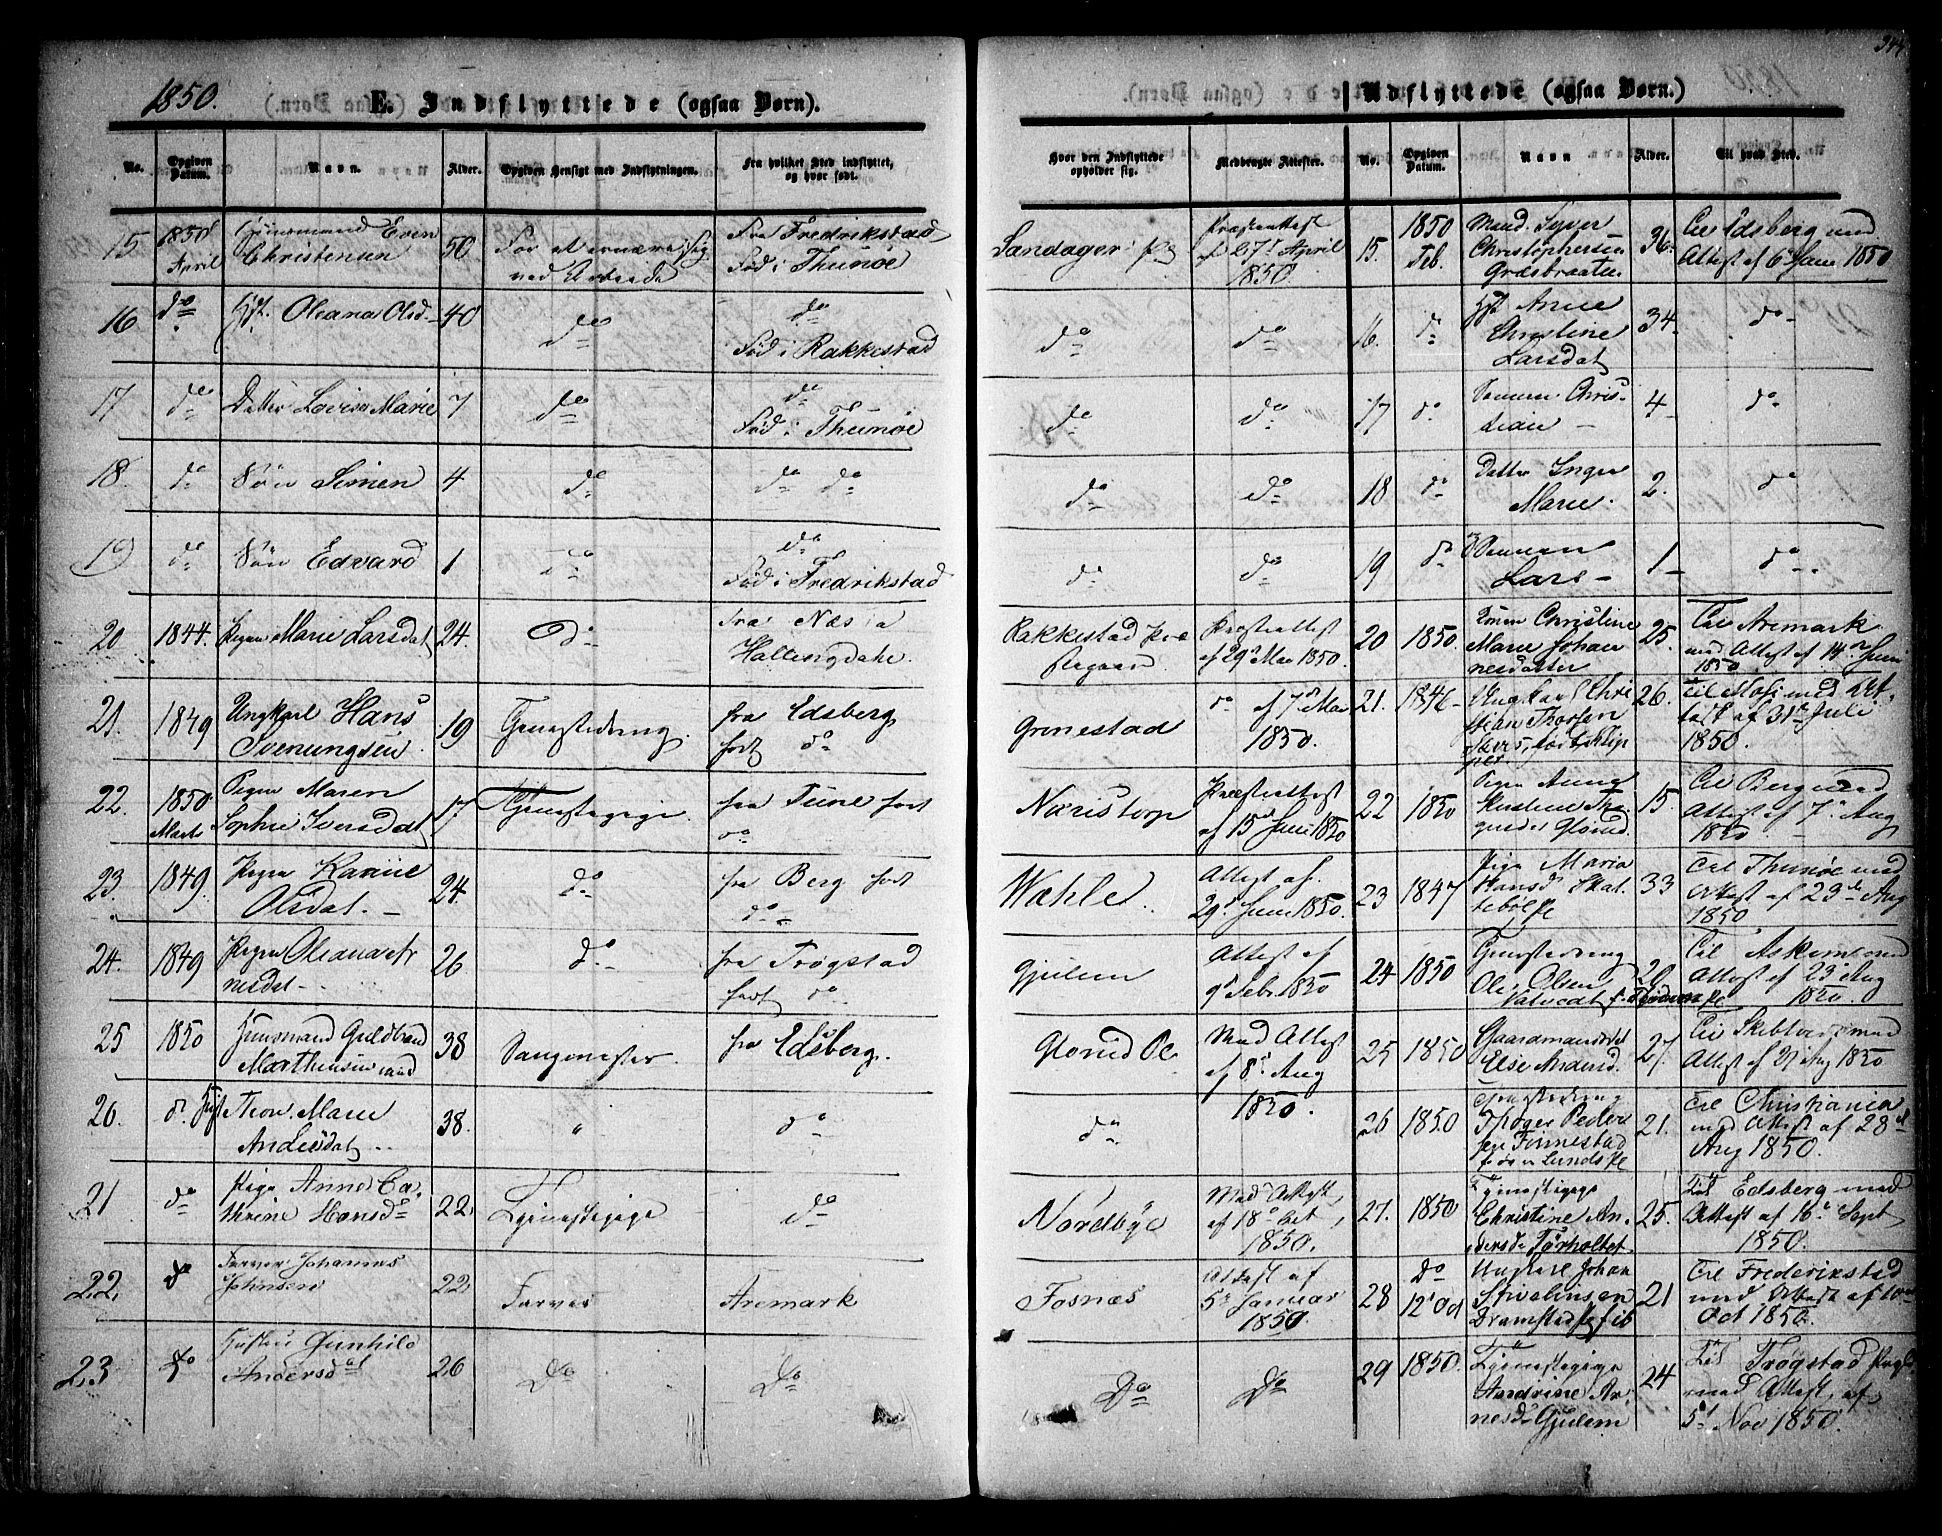 1850.
E. Indflyttede (ogsaa Børn).
No. | Opgiven Datum. | Navn. | Alder. | Opgiven Hensigt med Indflytningen. | Fra hvilket Sted indflyttet, og hvor født. | Hvor den Indflyttede opholder sig. | Medbragte Attester.
15 | 1850 April | Huusmand Even Christensen | 50 | For at ernære sig ved Arbeide | Fra Fredrikstad Fød i Thunøe | Sandager | Præsteattest 27d April 1850.
16 | do | Hst. Oleana Olsd | 40 | do | do Fød i Rakkestad | do | do
17 | do | Datter Lovise Marie | 7 | do | do Fød i Thunøe | do | do
18. | do | Søn Simen | 4 | do | do do | do | do
19 | do | Søn Edvard | 1 | do | do Fød i Fredrikstad | do | do
20 | 1844. | Pigen Marie Larsdat | 24. | do | Fra Næs i Hallingdale. | Rakkestad Præstegaard | Præsteattest af 29 Mai 1850.
21. | 1849 | Ungkarl Hans Svenungsen | 19 | Tjenestedreng. | fra Edsberg født do | Grinestad | do af 7d Mai 1850.
22. | 1850 Marts | Pigen Maren Sophie Iversdat | 17 | Tjenestepige | fra Tune født do | Næristorp | Præsteattest af 15d Juni 1850
23. | 1849. | Pigen Karine Olsdat. | 24. | do | fra Berg født do | Wæhle. | Attest af 29d Juni 1850.
24. | 1849 | Pigen Oleana Arnesdat | 26 | do | fra Trøgstad født do | Gjulem | Attest af 9d Febr 1850
25 | 1850 | Huusmand Guldbrand Marthinsen | 38 | | fra Edsberg. | Glorud | Med Attest af 8d Aug 1850.
26. | do | Kone Marie Andersdat | 38. | " | do | do
21 | do | Pige Anne Cathrine Hansd | 22. | Tjenestepige | do | Nordbye | Med Attest af 18d Oct 1850.
22. | do | Farver Johannes Johnsen | 22. | Farver | Aremark | Fosnæs | Attest af 5d Januar 1850.
23 | do | Hustru Gunhild Andersdat | 26 | Do | Do | Do | Do
Udflyttede (ogsaa Børn.)
No. | Opgiven Datum. | Navn | Alder. | Til hvad Sted.
15. | 1850 Feb. | Mand Syver Christophersen Græsbraaten | 36 | Til Edsberg med Attest af 6d Juni 1850
16. | do | Hst Anne Christine Larsdat | 34 | do
17 | do | Sønnen Christian | 4 | do
18 | do | Datter Inger Marie. | 2. | do
19 | do | Sønnen Lars | 1 | do
20 | 1850. | Christine Marie Johannesdatter | 25. | Til Aremark med Attest af 14de Juni 1850
21. | 1846 | Ungkarl Christian Thorsen | 26. | Til Moss med Attest af 31te Juli 1850.
22 | 1850 | Pigen Anne Glorud. | 15 | Til Berg med Attest af 7d Aug 1850
23 | 1847 | Pige Maria Hansd Skattebøl | 33 | Til Thunøe med Attest af 23de Aug 1850
24 | 1850 | Tjenestedreng Ole Olsen | 20 | Til Askim med Attest af 23d Aug 1850.
25 | 1850 | Gaardmandsdat Else Andersd. | 27. | Til Skibtvet med Attest af 27 Aug 1850
26 | 1850 | Tjenestedreng Thoger Pedersen Finnestad | 21. | Til Christiania med Attest af 28d Aug 1850.
27. | 1850 | Tjenestepige Christine Andersd Tørholtet | 25. | Til Edsberg med Attest af 16d Sept 1850.
28 | Do 12' Oct | Ungkarl Johan Dramstad | 21 | Til Frederikstad med Attest af Oct 1850.
29 | 1850. | Tjenestepige Andrine Arnesd Gjulem | 24 | Til Trøgstad med Attest af 5d Nov 1850.